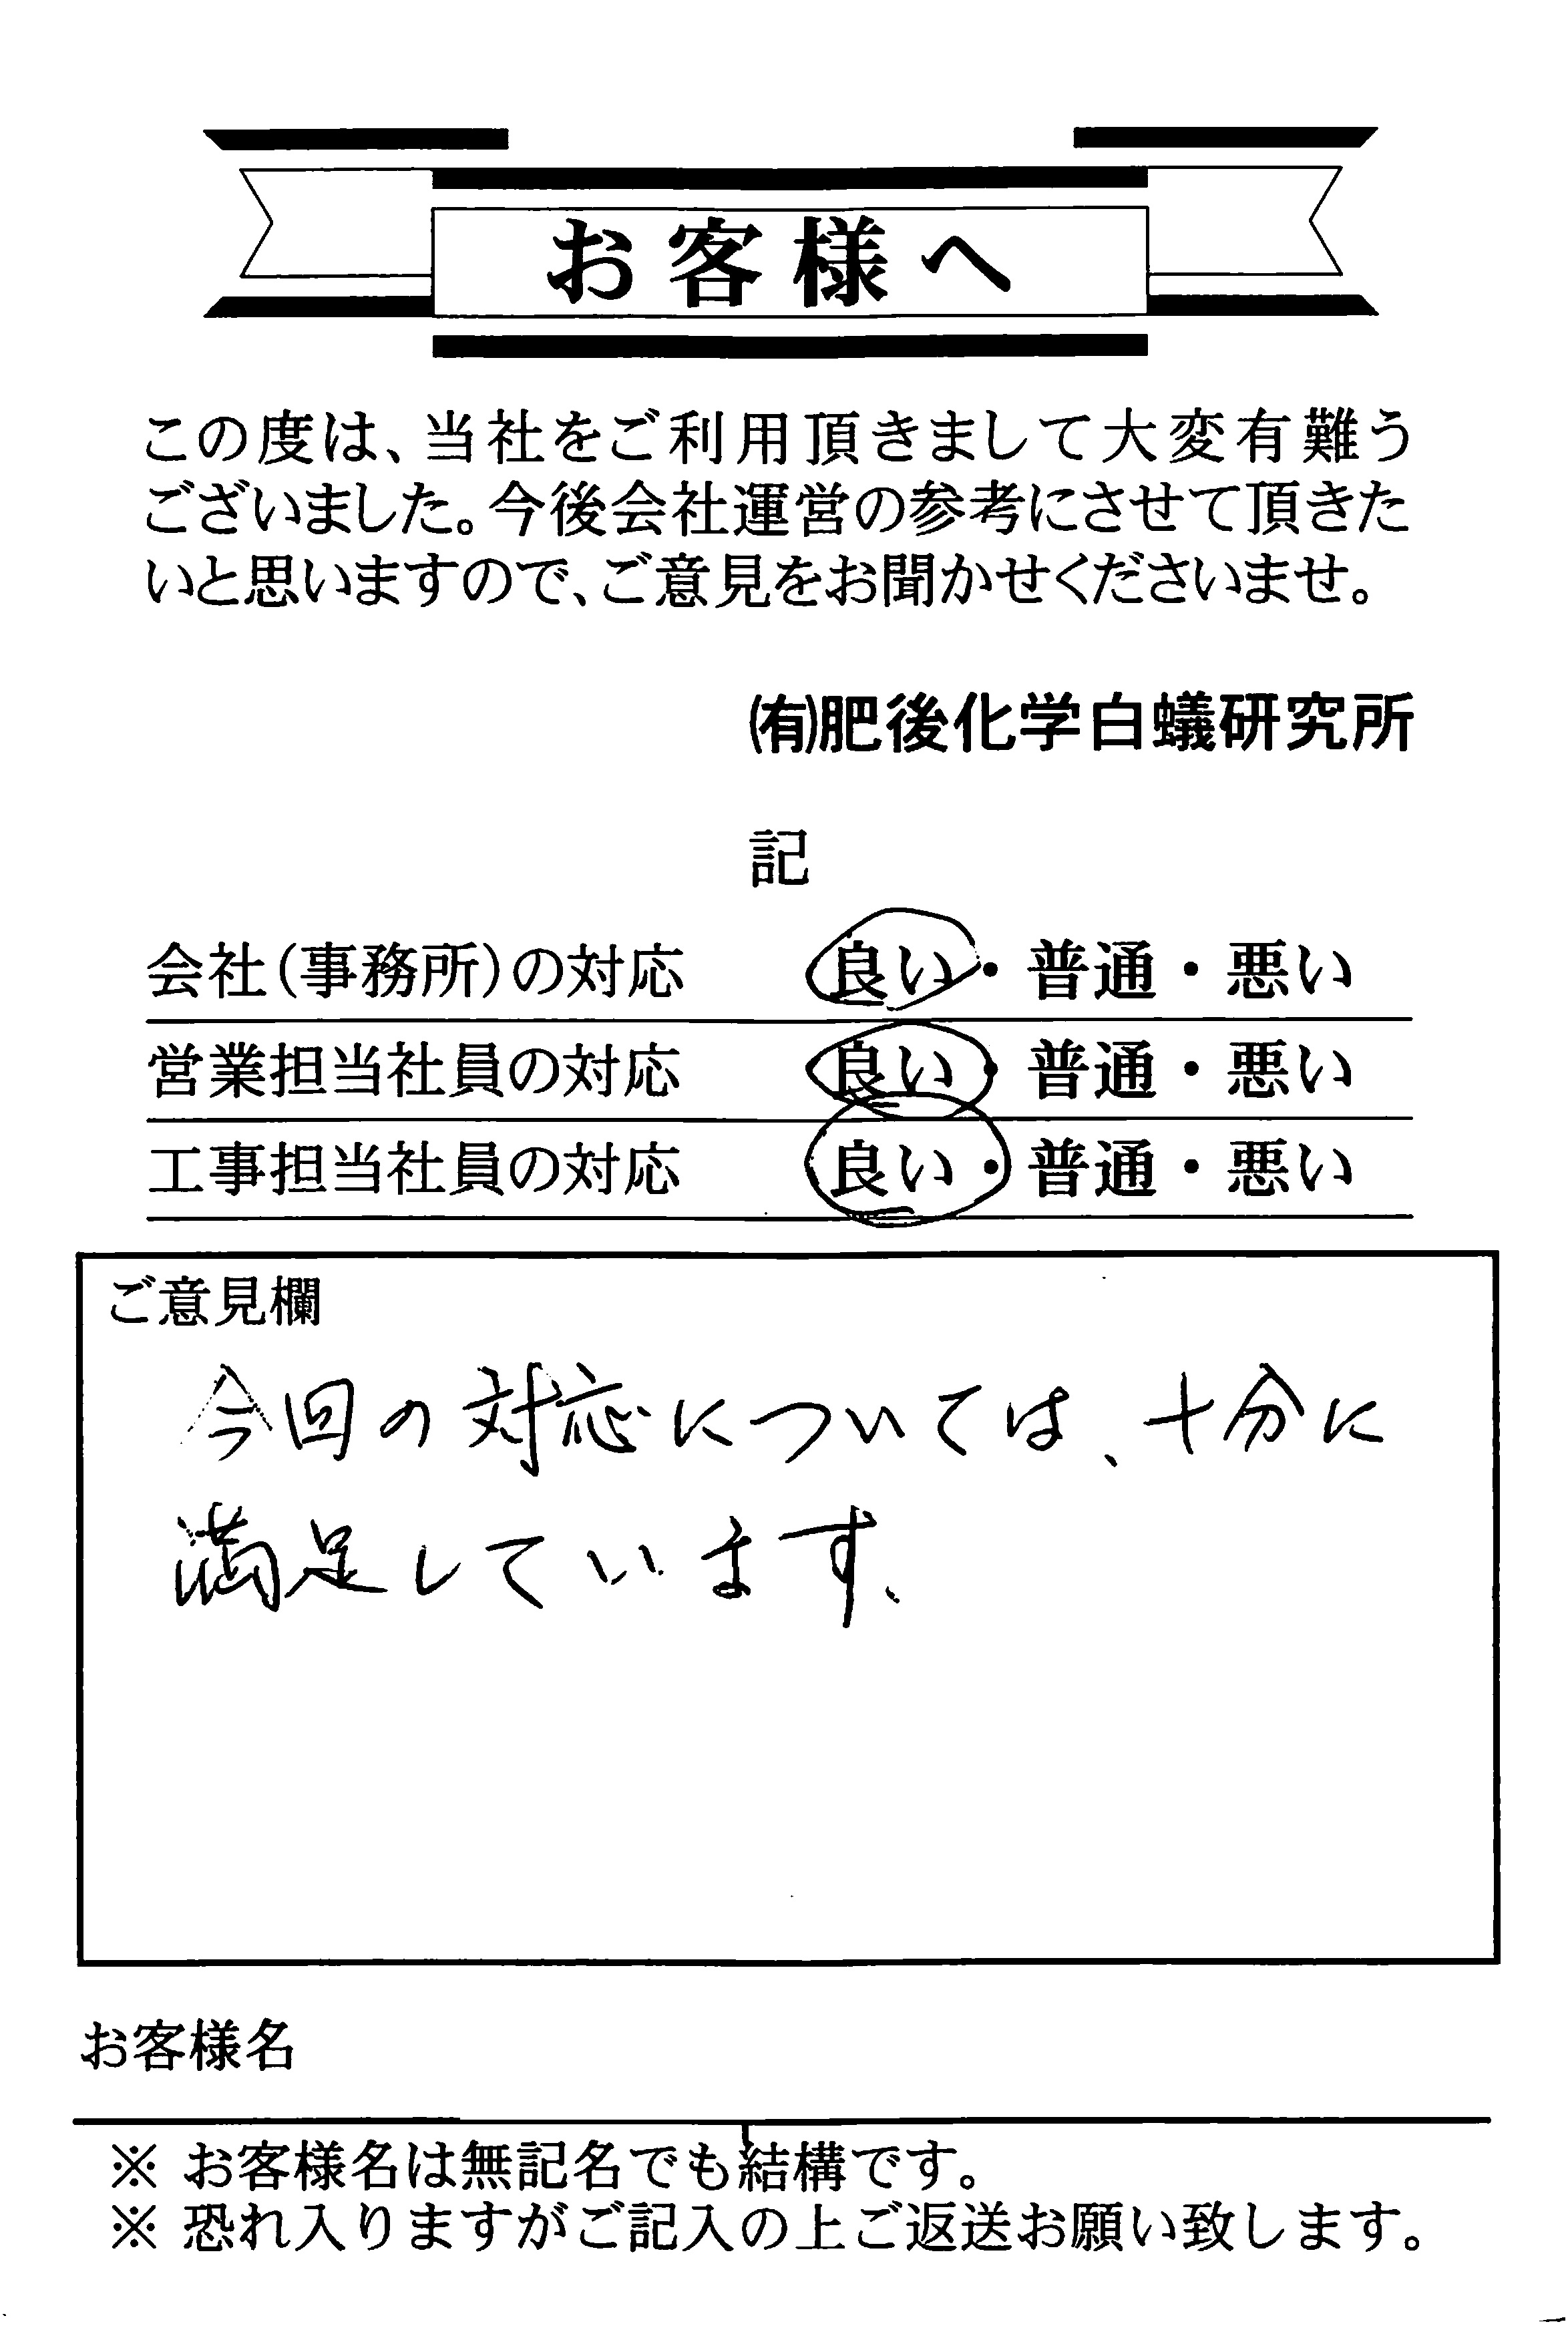 お客様へ
この度は、当社をご利用頂きまして大変有難う
ございました。今後会社運営の参考にさせて頂きた
いと思いますので、ご意見をお聞かせくださいませ。
㈲肥後化学白蟻研究所
記
会社(事務所)の対応 良い・普通・悪い
営業担当社員の対応 良い・普通・悪い
工事担当社員の対応 良い・普通・悪い
ご意見欄
今回の対応については、十分に
満足しています、
お客様名
※ お客様名は無記名でも結構です。
※ 恐れ入りますがご記入の上ご返送お願い致します。